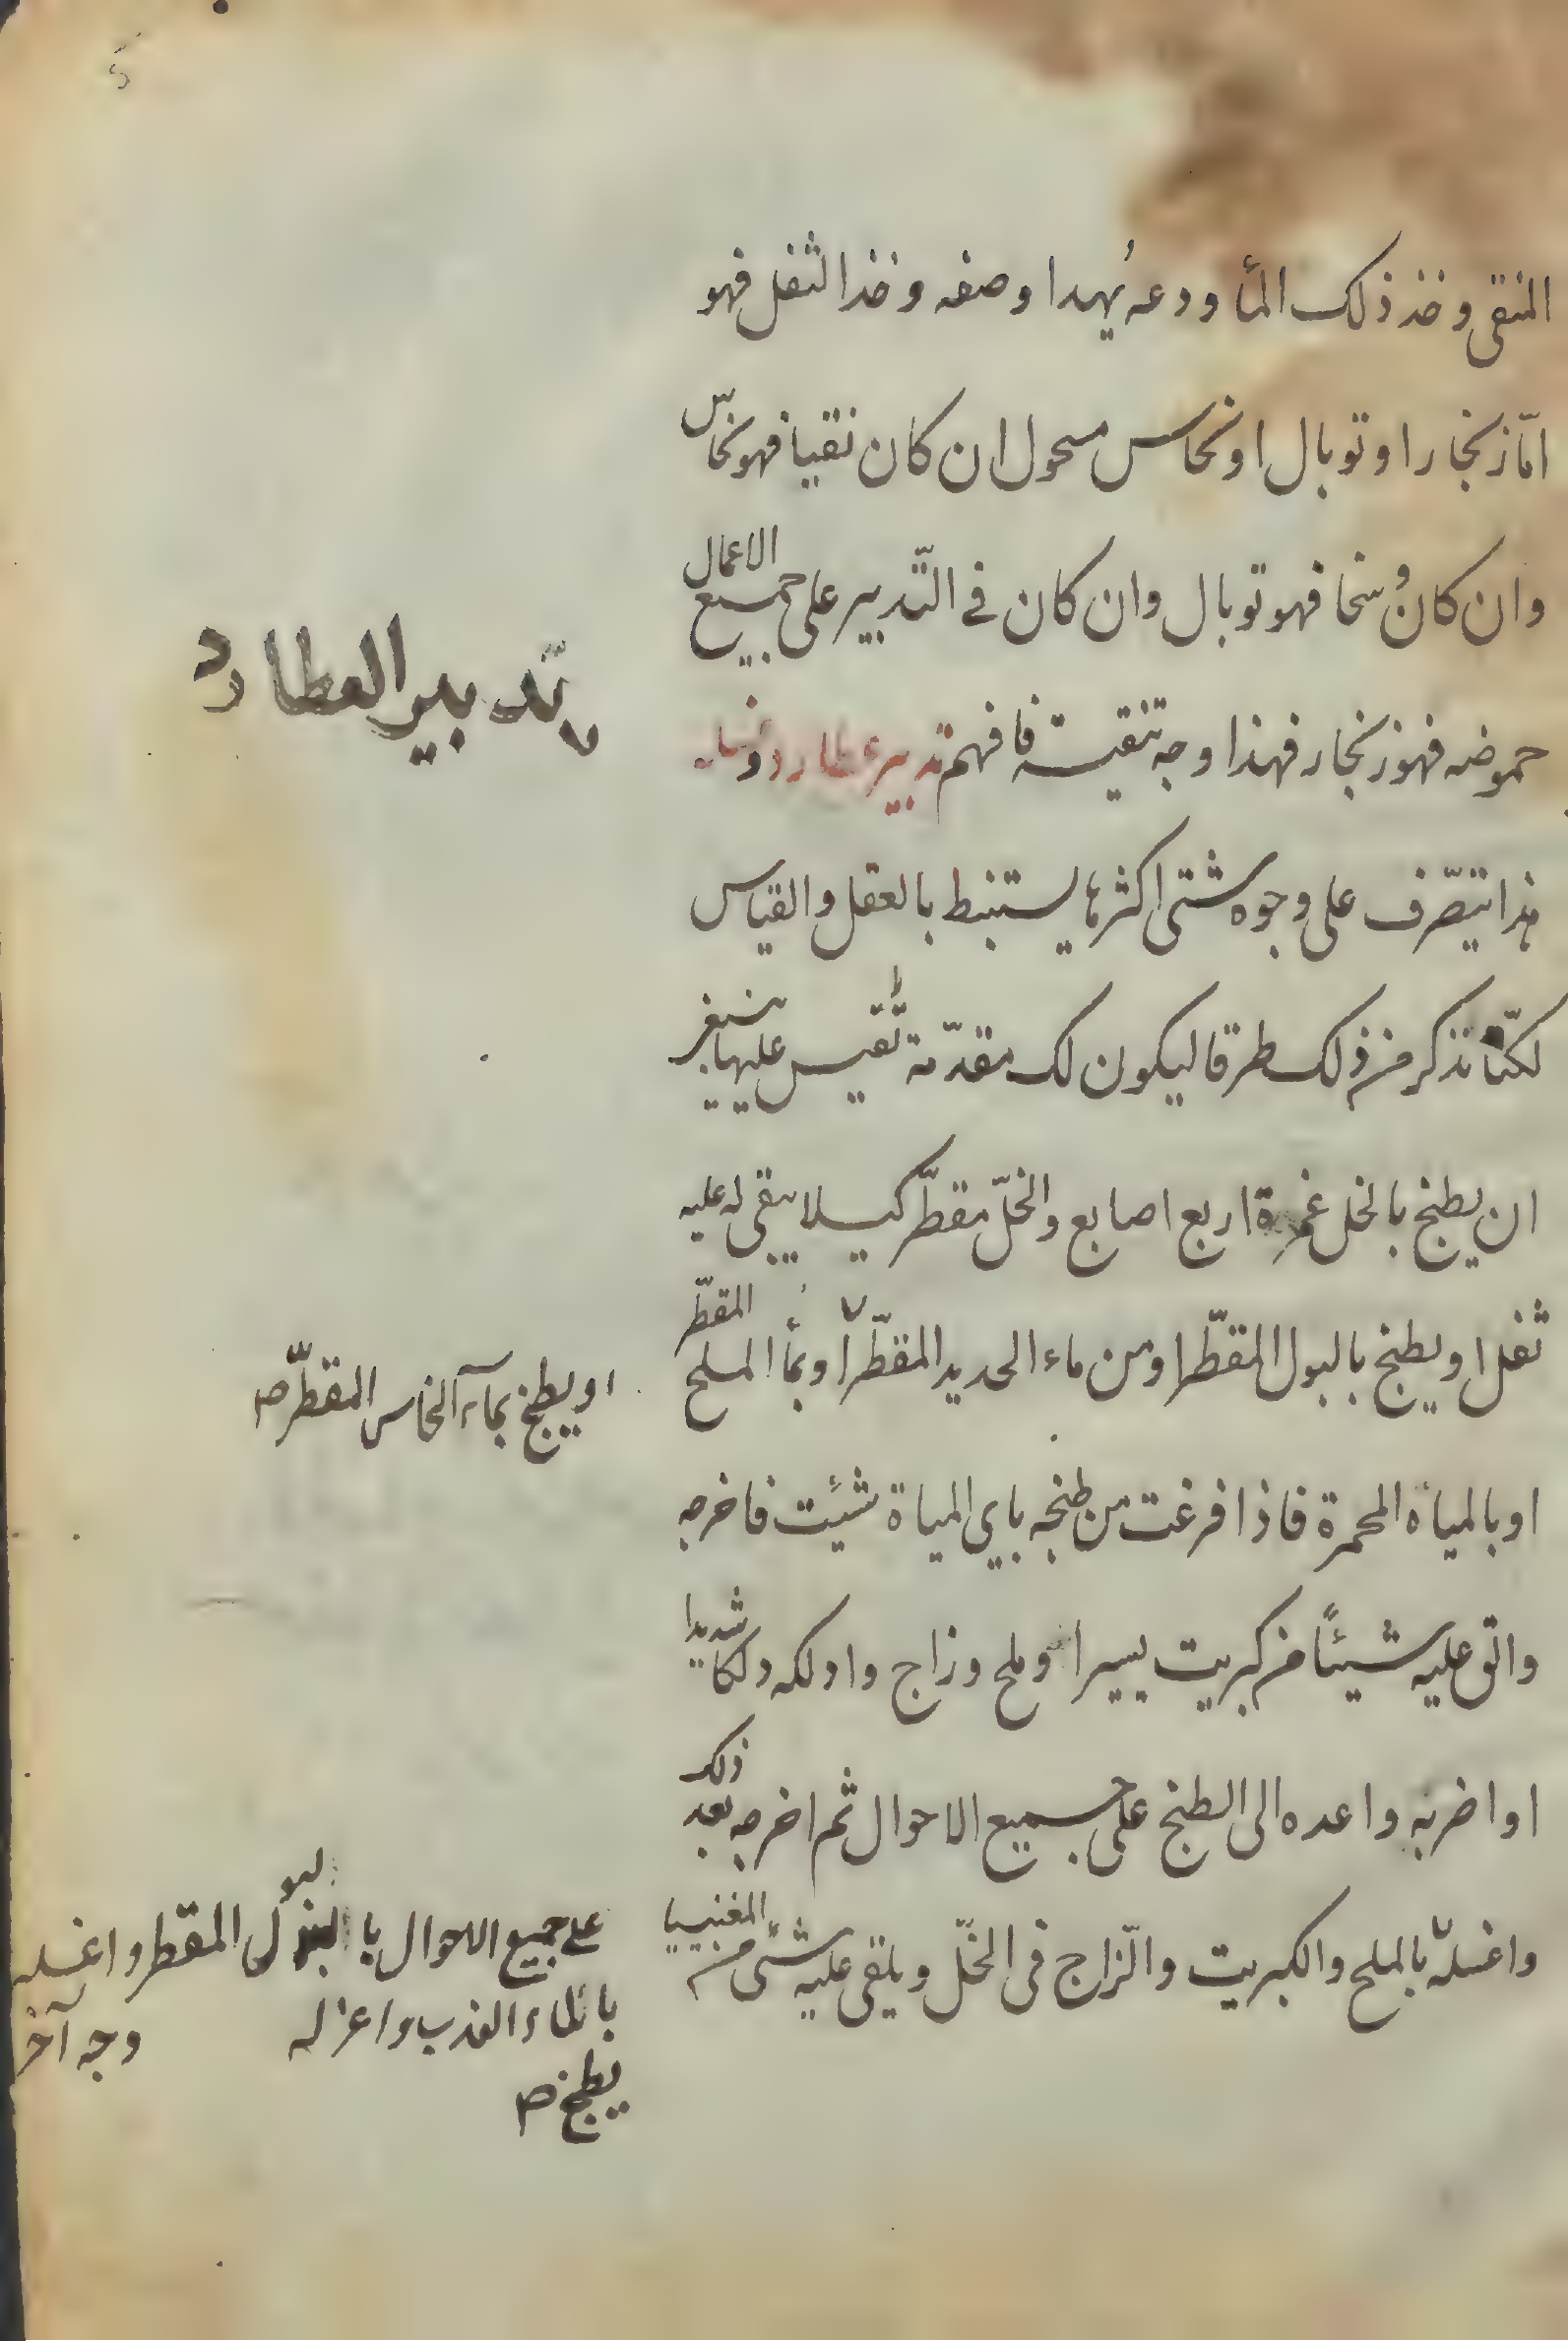 المنقى وخذ ذلك المأ ودعه يُهدا وصفه وخذ الثفل فهو
امّا زنجار او توبال او نحاس محول ان كان نقيا فهو نحاسّ
وان كان وُسخا فهو توبال وان كان في التّدبير على جميع الاعمال
حموضه فهو زنجار فهذا وجه تنقيته فافهم تدبير عطارد
هذا يتصّرف على وجوه شتى اكثرها يستنبط بالعقل والقياس
لكنّا نذكر من ذلك طرقا ليكون لك مقدّمة تقيس عليها ينبغى
ان يطبخ بالخل غمرة اربع اصابع والخلّ مقطّر كيلا يبقى له عليه
ثفل او يطبخ بالبول المقطّر او من ماء الحديد المقطّر او بمأ الملح المقطّر
او بالمياه المحمرة فاذا فرغت من طبخه باي المياة شئت فاخرجه
والق عليه شيئًا من كبريت يسيرا وملح وزاج وادلكه دلكا شديدا
او اضربه واعده الى الطبخ على جميع الاحوال ثم اخرجه بعد ذلك
واغسله بالملح والكبريت والزّاج فى الخّل ويلقى عليه شئ من المغنيسيا
تدبير العطارد
او يطبخ بمآء النحاس المقطّر صح
على جميع اللحوال بالبول المقطر واغسله
بالماء العذب واعزله وجه آخر
يطبخ صح